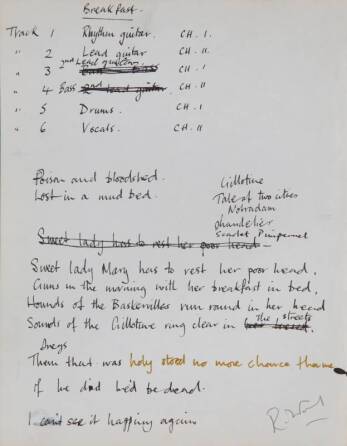 Breakfast.
Track 1 Rhythm guitar. CH. I.
" 2 Lead guitar CH. II.
" 3 2nd Lead guitar CH. I
" 4 Bass 2nd lead guitar CH. II.
" 5 Drums. CH. I
" 6 Vocals. CH. II
Poison and bloodshed.
Lost in a mud bed.
Gillotine
Tale of two cities
Notradam
chandelier
Scarlet Pimpernel
Sweet lady has to rest her poor head
Sweet lady Mary has to rest her poor head,
Guns in the morning with her breakfast in bed,
Hounds of the Baskervilles run round in her head
Sounds of the Gillotine ring clear in the streets
Dregs
Them that was holy stood no more chance than me
If he did he'd be dead.
I can't see it happing again